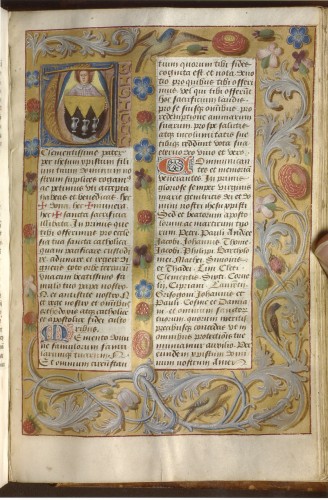 Clementissime pater
per ihesum xpristum fili
um tuum dominum no
strum supplices rogamus
ac petimus uti accepta
habeas et benedicas hec
✠ dona hec ✠ munera
hec ✠ sancta sacrificia
illibata In primis que
tibi offerimus pro eccle
sia tua sancta catholica
quam pacificare custodi
re adunare et regere di
gneris toto orbe terrarum
una cum beatissimo fa
mulo tuo papa nostro N
et antistite nostro N
et rege nostro et omnibus
orthodoxis atque catholice
et apostolice fidei culto
ribus.
Memento domi
ne famulorum famula
rumque tuarum N
Et omnium circunstan
tium quorum tibi fides
cognita est et nota deuo
tio pro quibus tibi offeri
mus vel qui tibi offerunt
hoc sacrificium laudis
pro se suisque omnibus pro
redemptione animarum
suarum pro spe salutis
atque incolumitatis sue
tibique reddunt vota sua
eterno deo viuo et vero
Communican
tes et memoria
venerantes In primis
gloriose semper virginis
marie genitricis dei et
domini nostri ihesu xpisti
Sed et beatorum aposto
lorum ac martirum tuo
rum Petri Pauli Andree
Jacobi Johannis Thome
Jacobi Philippi Bartholo
mei Mathei Simonis
et Thadei Lini Cleti
Clementis Sixti Corne
lij Cipriani Laurentij
Grisogoni Johannis et
Pauli Cosme et Damia
ni et omnium sancto
rum quorum meritis
precibusque concedas ut in
omnibus protectionis tue
muniamur auxilio Per
eundem xpistum domi
num nostrum Amen